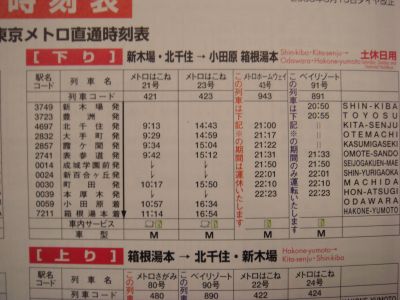 時刻表
東京メトロ直通時刻表
【下り】 新木場・北千住→小田原 箱根湯本 Shin-kiba・Kita-senju→Odawara・Hakone-yumoto 土休日用
駅名コード 列車名 メトロはこね21号 メトロはこね23号 この列車は下記※の期間は運休いたします メトロホームウェイ43号 この列車は下記※の期間のみ運転いたします ベイリゾート91号
列車コード 421 423 943 891
3749 新木場発 20:50 SHIN-KIBA
3723 豊洲発 20:55 TOYOSU
4697 北千住発 9:13 14:43 21:00 KITA-SENJU
2832 大手町発 9:29 14:59 OTEMACHI
2857 霞ケ関発 9:34 15:04 KASUMIGASEKI
2741 表参道発 9:42 15:12 OMOTE-SANDO
0014 成城学園前発 SEIJOGAKUEN-MAE
0024 新百合ヶ丘発 SHIN-YURIGAOKA
0030 町田発 10:17 15:50 22:10 22:10 MACHIDA
0039 本厚木発 22:23 22:23 HON-ATSUGI
0059 小田原着 10:57 16:34 ODAWARA
7211 箱根湯本着 11:14 16:54 HAKONE-YUMOTO
車内サービス
車型 M M M M
【上り】 箱根湯本→北千住・新木場 Hakone-yumoto→Kita-senju・Shin-kiba
駅名 列車名 メトロさがみ80号 ベイリゾート90号 メトロはこね22号 メトロはこね24号
コード 列車コード 480 890 422 424